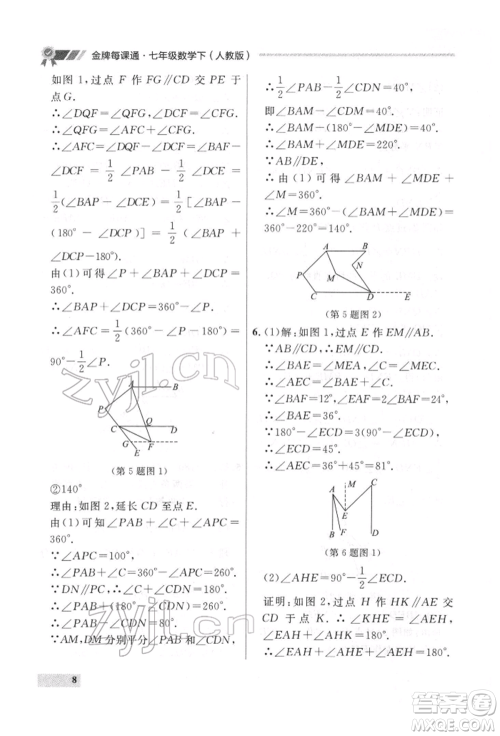 金牌每课通·七年级数学下（人教版）
如图 1，过点 F 作 FG∥CD 交 PC 于
点 G.
∴∠DQF＝∠QFG，∠DCF＝∠CFG.
∴∠AFC＝∠QFG－∠CFG＝∠DQF－
∠DCF＝1/2∠PAB－1/2∠DCE＝
1/2(∠BAP－∠DCE)＝1/2[∠BAP－
(180°－∠DCP)]＝1/2(∠BAP＋
∠DCP－180°).
由(1)可得∠P＋∠BAP＋∠DCP＝
360°.
∴∠BAP＋∠DCP＝360°－∠P.
∴∠AFC＝1/2(360°－∠P－180°)＝
90°－1/2∠P.
A
B
P
C
Q
D
G
F
E
（第 5 题图 1）
②140°
理由：如图 2，延长 CD 至点 E.
由(1)可知∠PAB＋∠PCD＋∠APC＝
360°.
∵∠APC＝100°，
∴∠PAB＋∠PCD＝260°.
∵DN∥PC，∴∠PCD＝∠NDE.
∴∠PAB＋∠NDE＝260°.
∵AM，DM 分别平分∠PAB，∠CDN，
∴1/2∠PAB－1/2∠CDN＝40°.
即∠BAM－∠MDN＝40°.
∴∠BAM－(180°－∠MDE)＝40°.
∴∠BAM＋∠MDE＝220°.
∵AB∥DE，
∴由(1)可得∠BAM＋∠M＋∠MDE＝360°.
∴∠M＝360°－(∠BAM＋∠MDE)＝
360°－220°＝140°.
A
B
N
P
M
C
D
E
（第 5 题图 2）
6. (1)解：如图 1，过点 E 作 EM∥AB.
∵AB∥CD，∴AB∥CD∥EM.
∴∠BAE＝∠MEA，∠MEC＝∠ECD.
∵∠BAF＝8°，∠EAF＝2∠BAF，
∴∠EAF＝16°.
∵180°－∠AEC＝∠BAE＋∠ECD，
∴∠AEC＝132°.
E
M
C
A
E
B
F
D
（第 6 题图 1）
(2)∠AHE＝90°－1/2∠ECD.
证明：如图 2，过点 H 作 HK∥AE 交
CD 于点 K. ∴∠KHE＝∠AEH，
∠EAH＋∠AHK＝180°.
∴∠EAH＋∠AHE＋∠AEH＝180°.
8